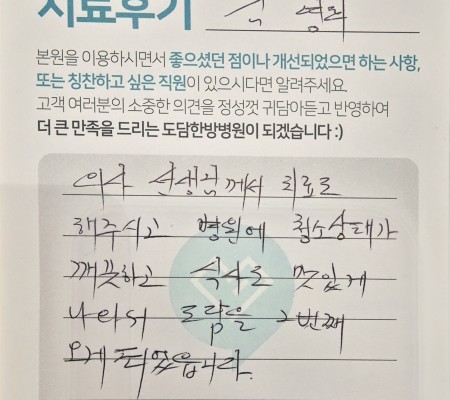 치료후기
본원을 이용하시면서 좋으셨던 점이나 개선되었으면 하는 사항,
또는 칭찬하고 싶은 직원이 있으시다면 알려주세요.
고객 여러분의 소중한 의견을 정성껏 귀담아듣고 반영하여
더 큰 만족을 드리는 도담한방병원이 되겠습니다 :)
의사 선생님께서 치료로
해주시고 병원에 청소상태가
깨끗하고 식사도 맛있게
나와서 도담을 2번째
오게 되었습니다.